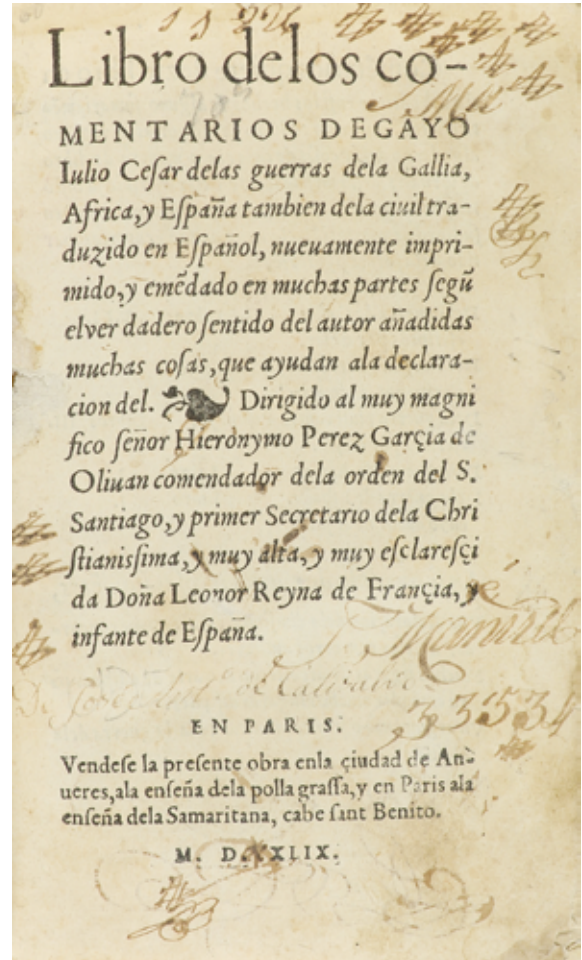 Libro delos co-
MENTARIOS DEGAYO
Iulio Ceſar delas guerras dela Gallia,
Africa, y Eſpaña tambien dela ciuil tra-
duzido en Eſpañol, nueuamente impri-
mido, y emẽdado en muchas partes ſegũ
elver dadero ſentido del autor añadidas
muchas coſas, que ayudan ala declara-
cion del. ❧ Dirigido al muy magni
fico ſeñor Hieronymo Perez Garçia de
Oliuan comendador dela orden del S.
Santiago, y primer Secretario dela Chri
ſtianiſsima, y muy alta, y muy eſclareſçi
da Doña Leonor Reyna de Françia, y
infante de Eſpaña.
EN PARIS.
Vendeſe la preſente obra enla çiudad de An-
ueres, ala enſeña dela polla graſſa, y en Paris ala
enſeña dela Samaritana, cabe ſant Benito.
M. D. XXLIX.